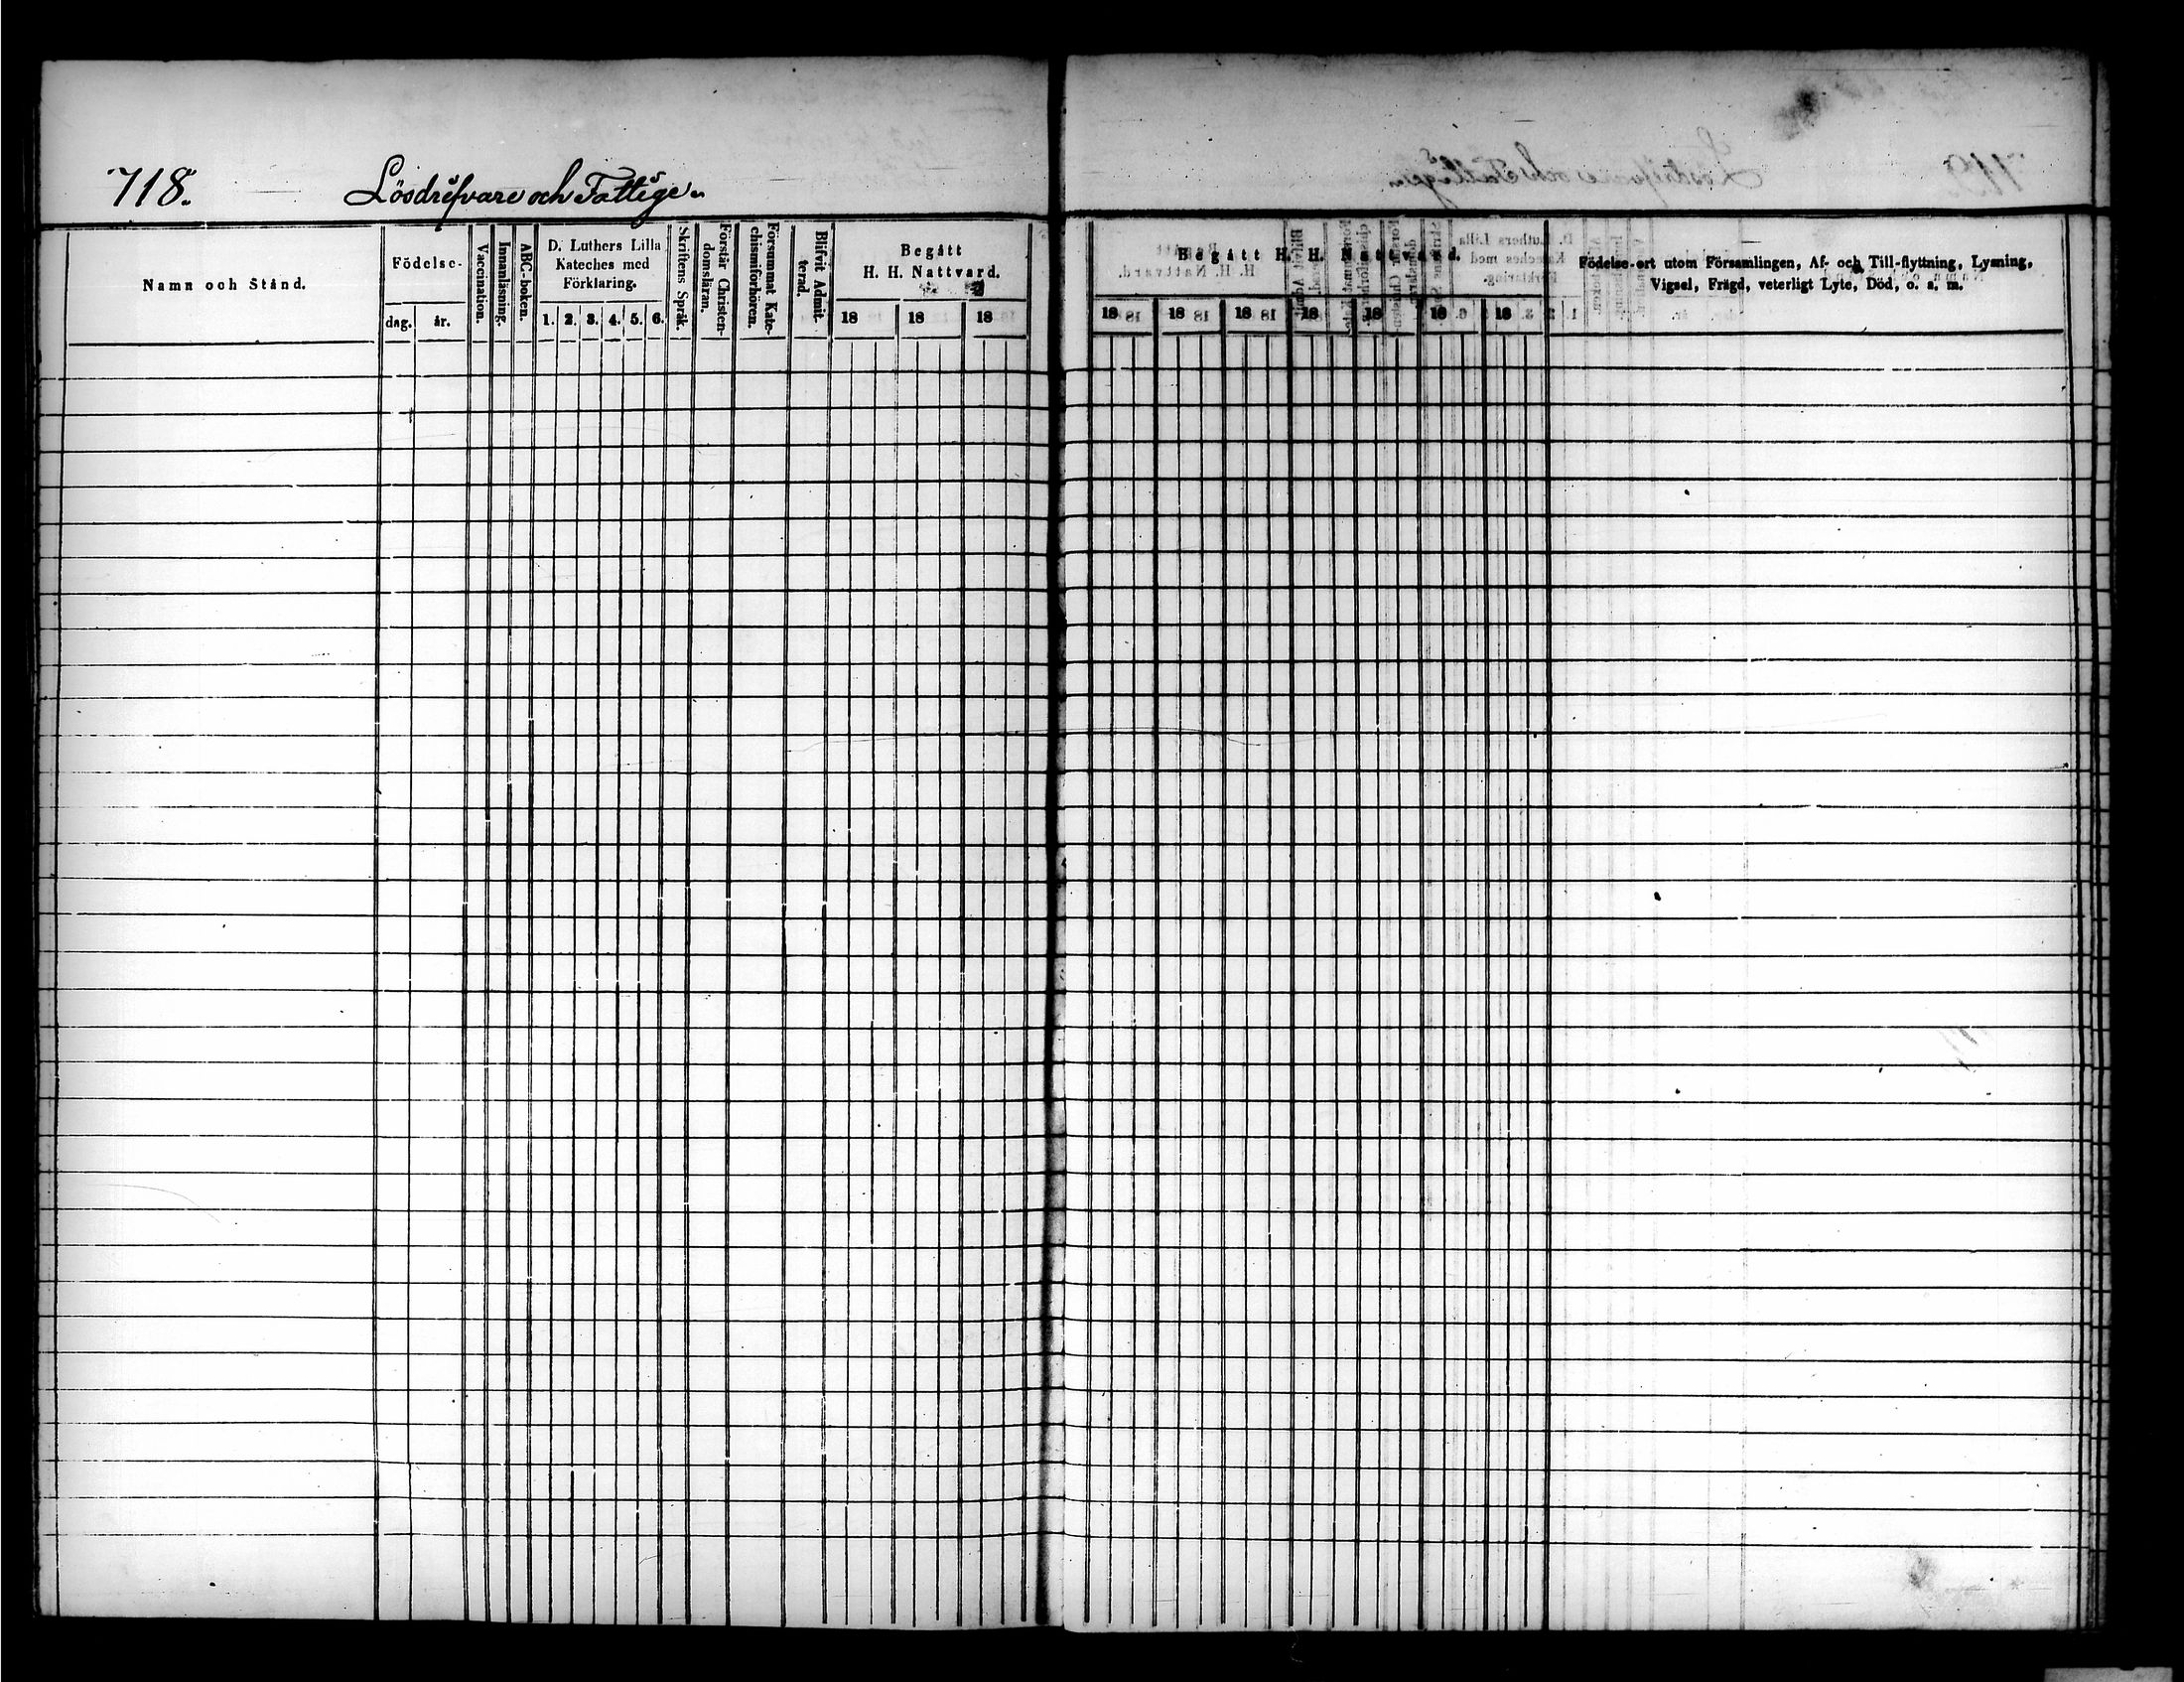 718. Lösdrifvare och Fattige.
Namn och Stånd.
Födelse-
dag. år.
Vaccination.
Innanläsning.
ABC-boken.
D. Luthers Lilla
Kateches med
Förklaring.
1. 2. 3. 4. 5. 6.
Skriftens Språk.
Förstår Christen-
domsläran.
Försummat Kate-
chismiförhören.
Blifvit Admit-
terad.
Begått
H. H. Nattvard.
18 18 18
Begått H. H. Nattvard.
18 18 18 18 18 18 18
Födelse-ort utom Församlingen, Af- och Till-flyttning, Lysning,
Vigsel, Frägd, veterligt Lyte, Död, o. s. m.